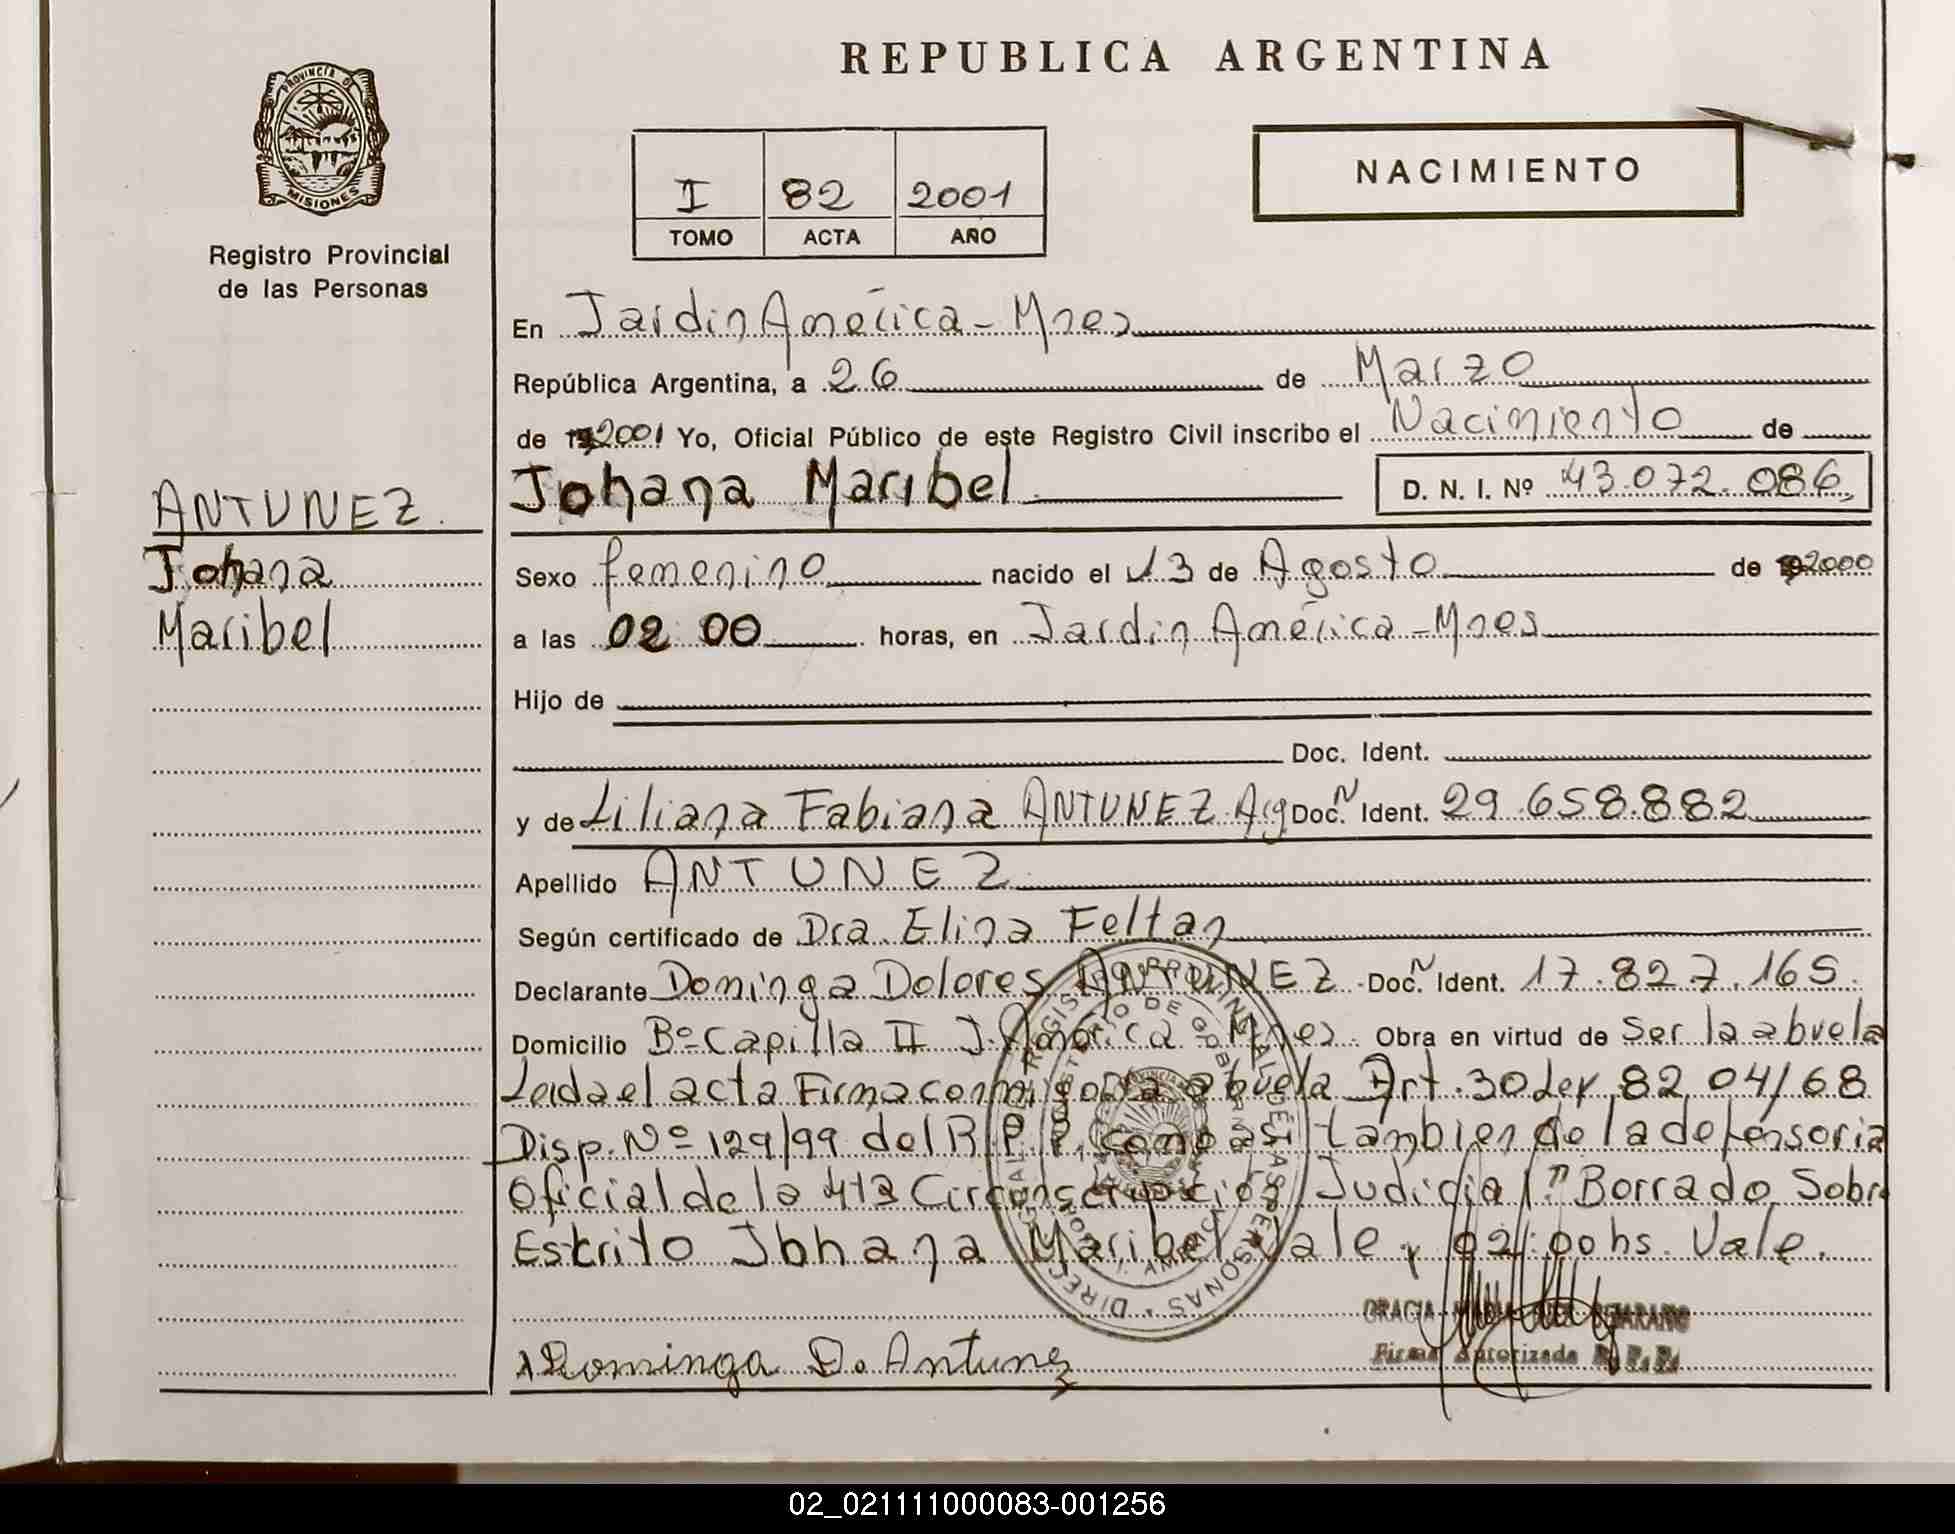 REPUBLICA ARGENTINA
PROVINCIA DE MISIONES
Registro Provincial
de las Personas
I 82 2001
TOMO ACTA AÑO
NACIMIENTO
En Jardin América - Mnes
República Argentina, a 26 de Marzo
de 2001 Yo, Oficial Público de este Registro Civil inscribo el Nacimiento de
Johana Maribel D. N. I. Nº 43.072.086
ANTUNEZ
Johana
Maribel
Sexo femenino nacido el 13 de Agosto de 2000
a las 02 00 horas, en Jardin América - Mnes
Hijo de
Doc. Ident.
y de Liliana Fabiana ANTUNEZ Arg Doc. N Ident. 29.658.882
Apellido ANTUNEZ
Según certificado de Dra. Elina Feltan
Declarante Dominga Dolores ANTUNEZ Doc. N Ident. 17.827.165
Domicilio Bº Capilla II J. América Mnes. Obra en virtud de Ser la abuela
Leida el acta Firma conmigo la abuela Art. 30 Ley 8204/68
Disp. Nº 129/99 del R.P.P. también de la defensoria
Oficial de la 4ta Circunscripción Judicial Borrado Sobre
Escrito Johana Maribel Vale y 02:00 hs. Vale.
Dominga D. Antunez
Firma Autorizada R.P.P.
02_021111000083-001256